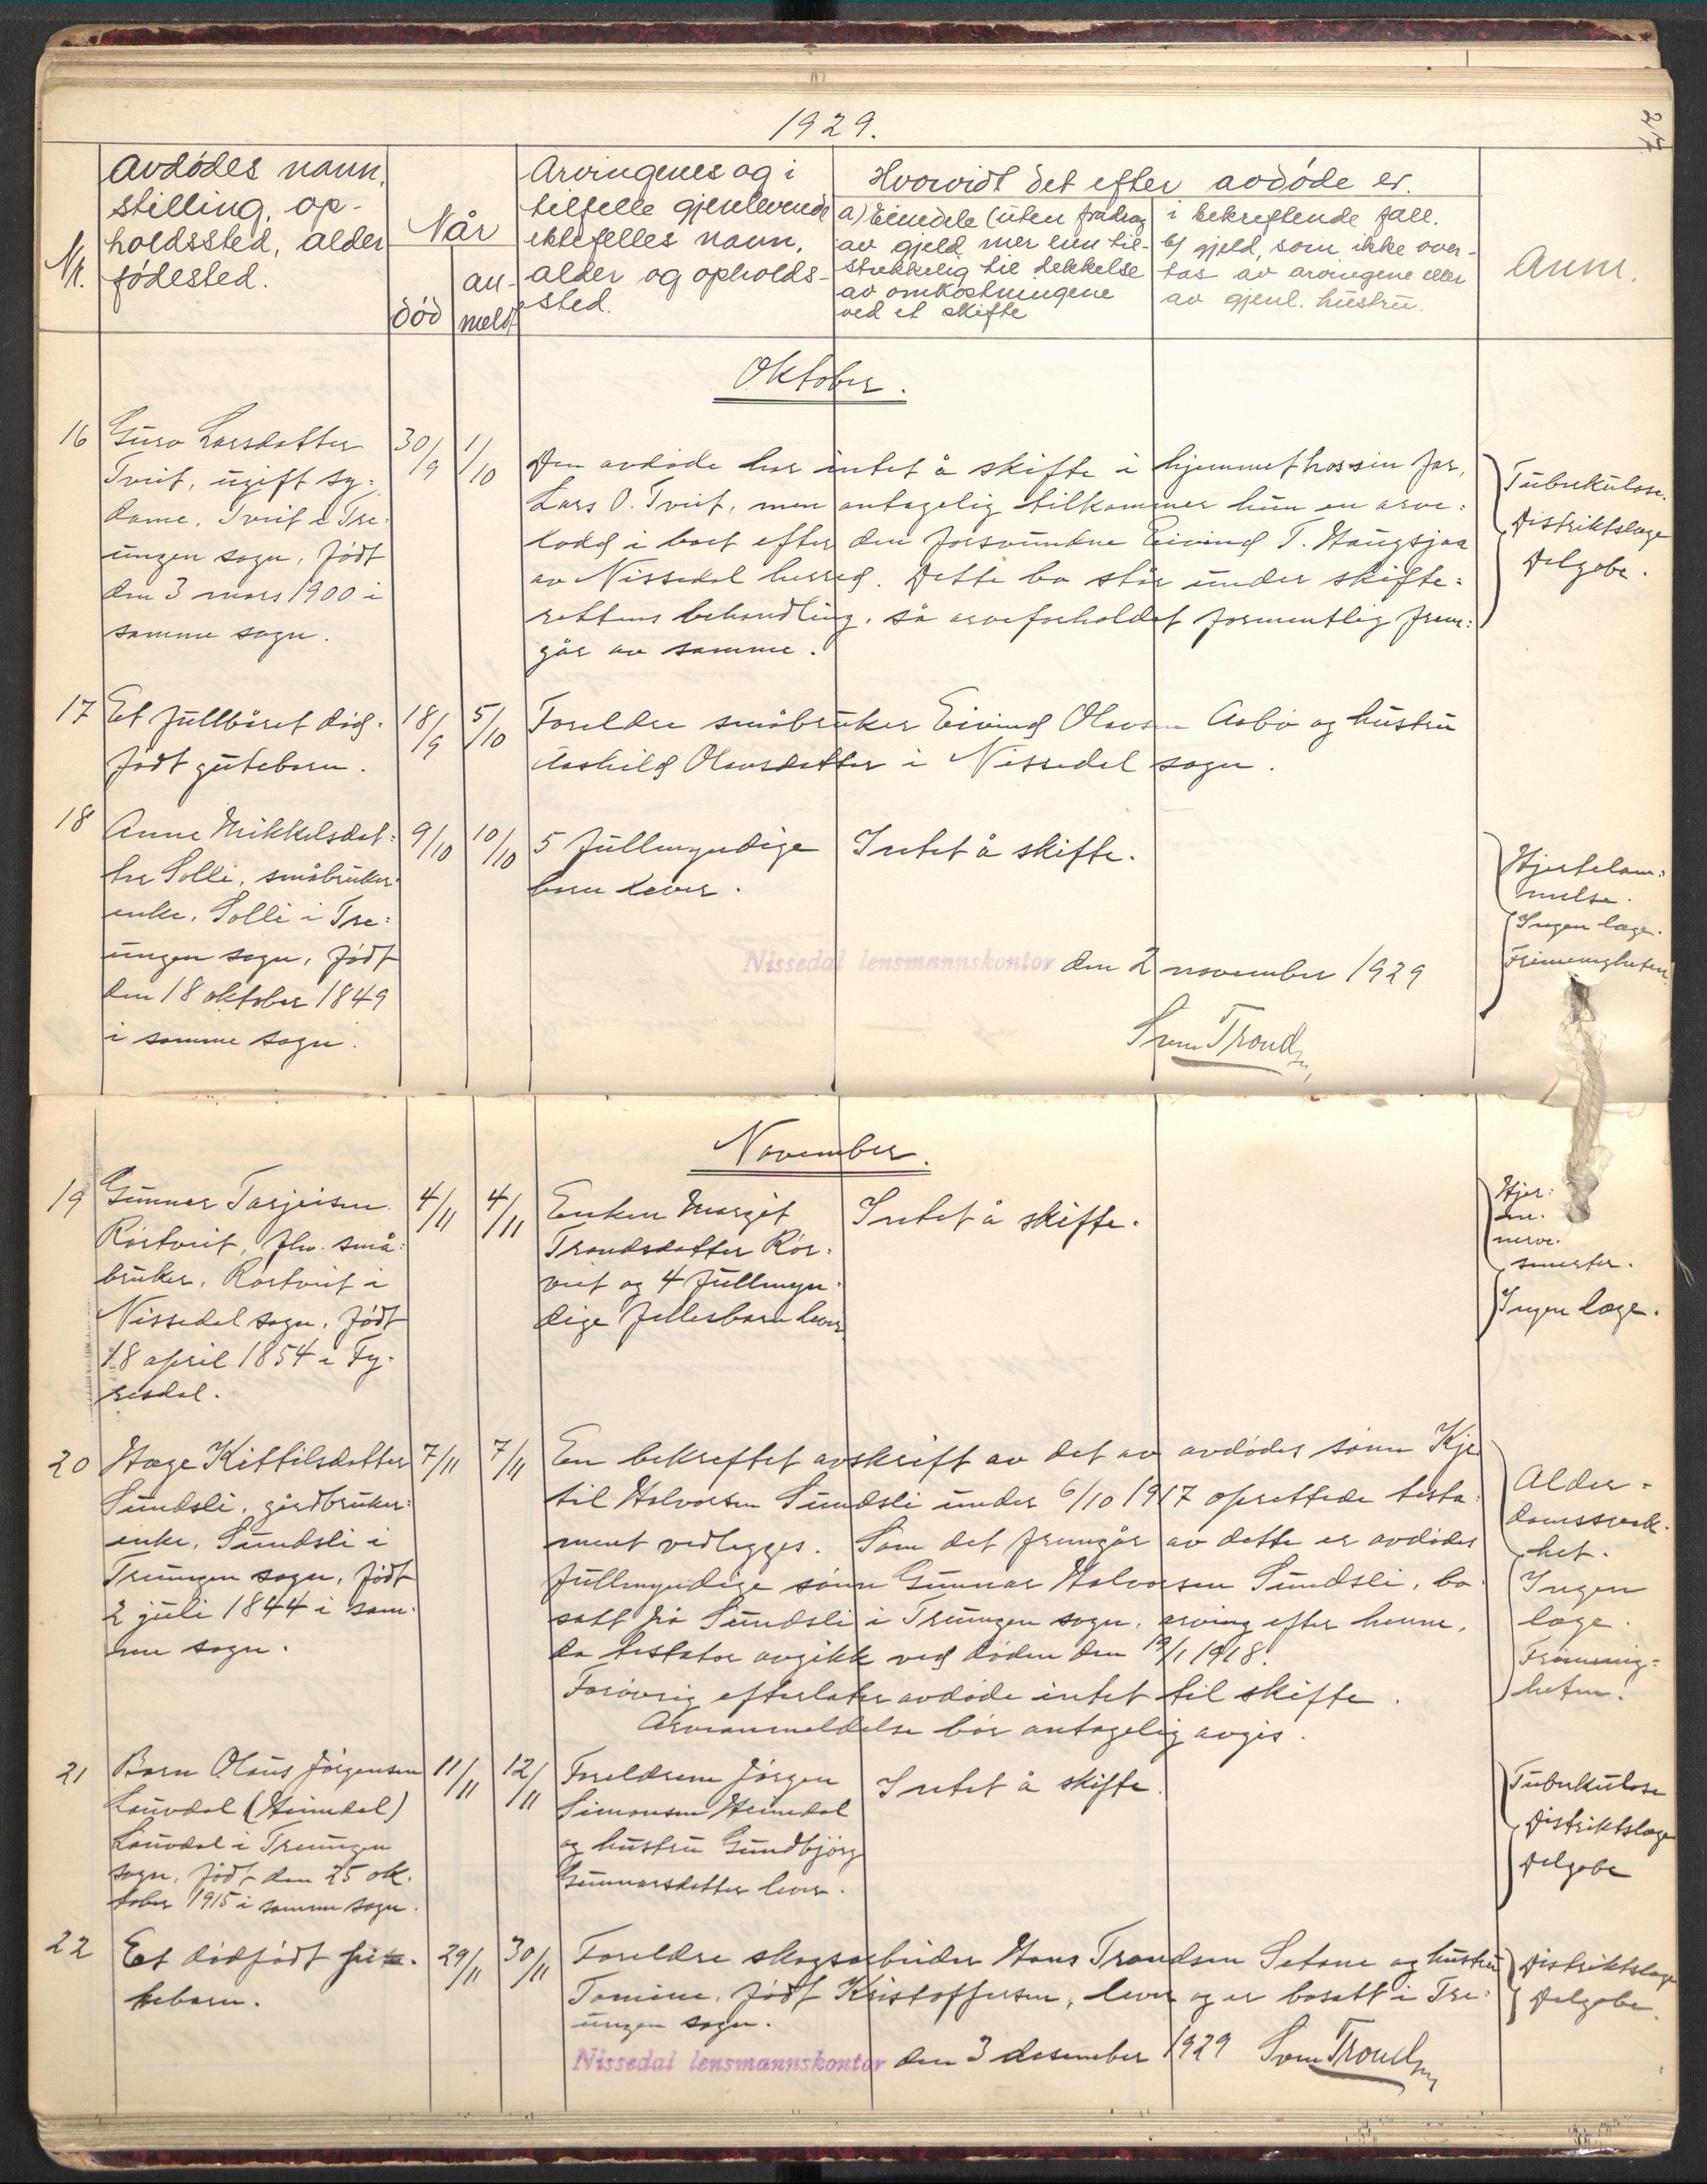 1929.
27.
Nr.
Avdødes navn,
stilling, op-
holdssted, alder
fødested.
Når
død
an-
meldt
Arvingenes og i
tilfelle gjenlevende
ektefelles navn,
alder og opholds-
sted.
Hvorvidt det efter avdøde er.
a) Eiendele (uten fradrag
av gjeld mer enn til-
strekkelig til dekkelse
av omkostningene
ved et skifte
i bekreftende fall.
b) gjeld, som ikke over-
tas av arvingene eller
av gjenl. hustru.
Anm.
Oktober.
16
Guro Larsdatter
Tveit, ugift sy-
dame, Tveit i Tre-
ungen sogn, født
den 3 mars 1900 i
samme sogn.
30/9
1/10
Den avdøde har intet å skifte i hjemmet hos sin far,
Lars O. Tveit, men antagelig tilkommer hun en arve-
lodd i boet efter den forsvundne Eivind T. Haugsjaa
av Nissedal herred. Dette bo står under skifte-
rettens behandling, så arveforholdet formentlig frem-
går av samme.
Tuberkulose.
Distriktslæge
Delgobe.
17
Et fullbåret død-
født guttebarn.
18/9
5/10
Foreldre småbruker Eivind Olavsen Aabø og hustru
Aashild Olavsdatter i Nissedal sogn.
18
Anne Mikkelsdat-
ter Solli, småbruker-
enke, Solli i Tre-
ungen sogn, født
den 18 oktober 1849
i samme sogn.
9/10
10/10
5 fullmyndige
barn lever.
Intet å skifte.
Hjertelam-
melse.
Ingen læge.
Frimenigheten
Nissedal lensmannskontor den 2 november 1929
Svein Trondsen
November.
19
Gunnar Tarjeisen
Rørtveit, fhv. små-
bruker, Rørtveit i
Nissedal sogn, født
18 april 1854 i Fy-
resdal.
4/11
4/11
Enken Margit
Trondsdatter Rør-
tveit og 4 fullmyn-
dige fellesbarn lever.
Intet å skifte.
Hjer-
ne.
nerve-
smerter.
Ingen læge.
20
Hæge Kittilsdatter
Sundsli, gårdbruker-
enke, Sundsli i
Treungen sogn, født
2 juli 1844 i sam-
me sogn.
7/11
7/11
En bekreftet avskrift av det av avdødes sønn Kje-
til Halvorsen Sundsli under 6/10 1917 oprettede testa-
ment vedlegges. Som det fremgår av dette er avdødes
fullmyndige sønn Gunnar Halvorsen Sundsli, bo-
satt på Sundsli i Treungen sogn, arving efter henne,
da testator avgikk ved døden den /1 1918.
Forøvrig efterlater avdøde intet til skifte.
Arveanmeldelse bør antagelig avgis.
Alder-
domssvak-
het.
Ingen
læge.
Frimenig-
heten.
21
Barn Olaus Jørgensen
Lauvdal (Heimdal)
Lauvdal i Treungen
sogn, født den 25 ok-
tober 1915 i samme sogn.
11/11
12/11
Foreldrene Jørgen
Simonsen Heimdal
og hustru Gundbjørg
Gunnarsdatter lever.
Intet å skifte.
Tuberkulose
Distriktslæge
Delgobe
22
Et dødfødt
barn.
29/11
30/11
Foreldre skogsarbeider Hans Trondsen Setane og hustru
Tomine, født Kristoffersen, lever og er bosatt i Tre-
ungen sogn.
Distriktslæge
Delgobe.
Nissedal lensmannskontor den 3 desember 1929 Svein Trondsen